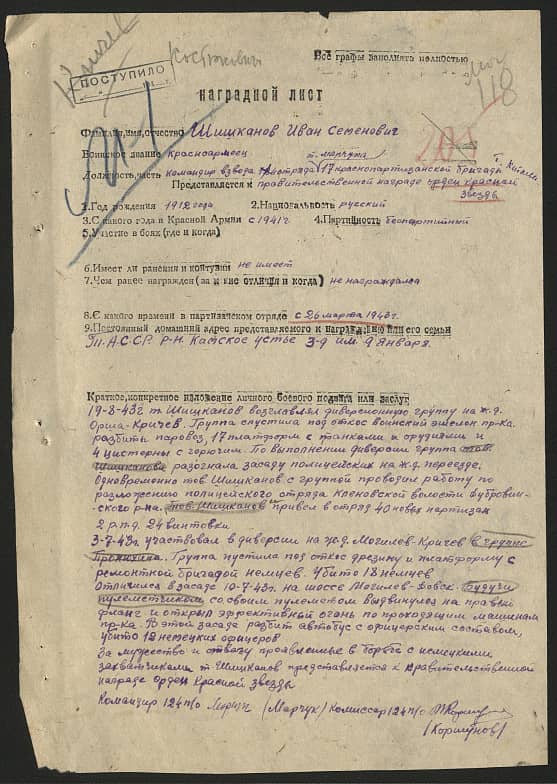 Костюкович
Все графы заполнять полностью
ПОСТУПИЛО
118
НАГРАДНОЙ ЛИСТ
Фамилия, имя, отчество Шишканов Иван Семенович
Воинское звание красноармеец
Должность, часть командир взвода отряда т. марчука 17 краснопартизанской бригады т.
Представляется к правительственной награде орден Красной Звезды
1.Год рождения 1912 года 2.Национальность русский
3.С какого года в Красной Армии с 1941 г 4.Партийность беспартийный
5.Участие в боях (где и когда)
6.Имеет ли ранения и контузии не имеет
7.Чем ранее награжден (за какие отличия и когда) не награждался
8.С какого времени в партизанском отряде с 26 марта 1943 г.
9.Постоянный домашний адрес представляемого к награждению или его семьи
Т.А.С.С.Р. р-н. Камское устье з-д им. 9 Января.
Краткое, конкретное изложение личного боевого подвига или заслуг
19-8-43г т. Шишканов возглавлял диверсионную группу на ж.д.
Орша-Кричев. Группа спустила под откос воинский эшелон пр-ка.
разбиты паровоз, 17 платформ с танками и орудиями и
4 цистерны с горючим. По выполнении диверсии группа тов.
Шишканова разогнала засаду полицейских на ж.д. переезде.
Одновременно тов Шишканов с группой проводил работу по
разложению полицейского отряда Кленовской волости Дубровин-
ского р-на. тов. Шишканов привел в отряд 40 новых партизан
2 р.п.д. 24 винтовки
3-7-43г. участвовал в диверсии на ж.д. Могилев-Кричев в группе
Группа пустила под откос дрезину и платформу с
ремонтной бригадой немцев. Убито 18 немцев
Отличился в засаде 10-7-43г на шоссе Могилев-Довск. Будучи
пулеметчиком со своим пулеметом выдвинулся на правый
фланг и открыл эффективный огонь по проходящим машинам
пр-ка. В этой засаде разбит автобус с офицерским составом,
убито 12 немецких офицеров
За мужество и отвагу проявленные в борьбе с немецкими
захватчиками т. Шишканов представляется к правительственной
награде орден Красной Звезды
Командир 124 п/о (Марчук) Комиссар 124 п/о
(Коршунов)